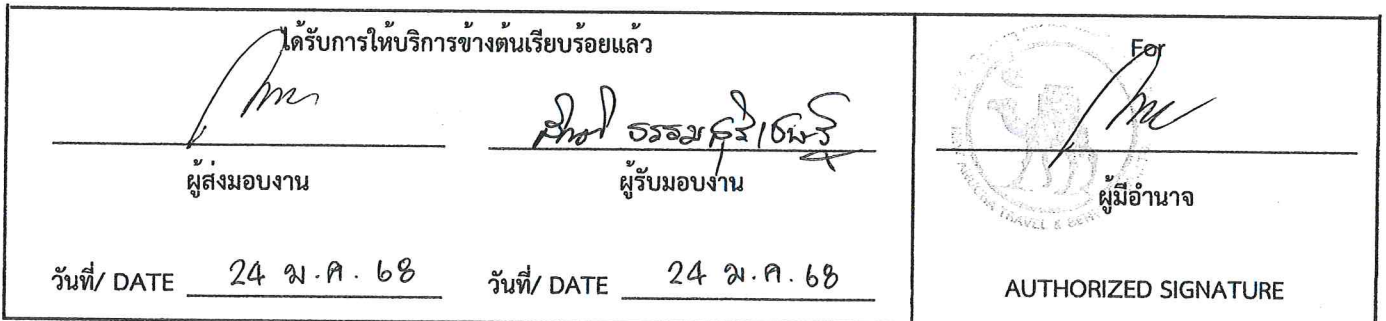 ได้รับการให้บริการข้างต้นเรียบร้อยแล้ว
ผู้ส่งมอบงาน
ผู้รับมอบงาน
วันที่/ DATE 24 ม.ค. 68
วันที่/ DATE 24 ม.ค. 68
For
ผู้มีอำนาจ
TRAVEL &
AUTHORIZED SIGNATURE